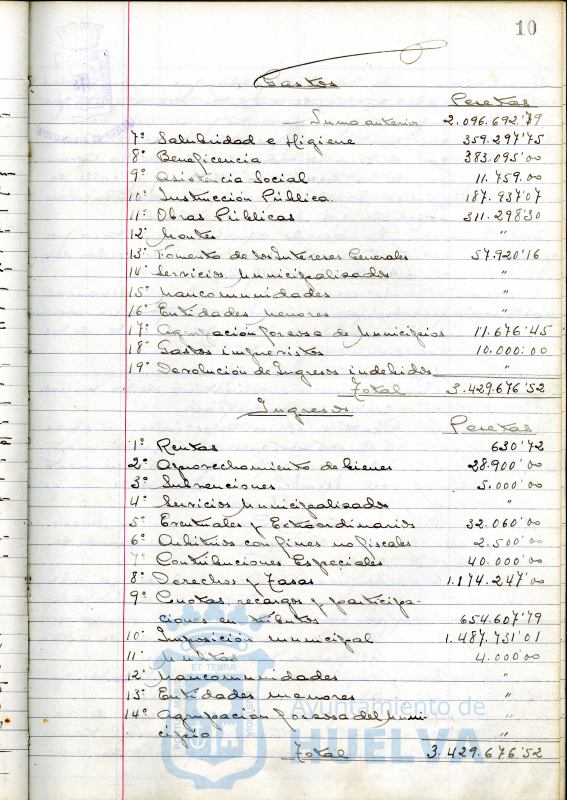 10
Gastos
Pesetas
Suma anterior 2.096.692'79
7º Salubridad e Higiene 359.297'75
8º Beneficencia 383.095'00
9º Asistencia Social 11.759.00
10º Instrucción Pública 187.937'07
11º Obras Públicas 311.298'30
12º Montes "
13º Fomento de los Intereses Generales 57.920'16
14º Servicios Municipalizados "
15º Mancomunidades "
16º Entidades menores "
17º Agrupación forzosa de Municipios 11.676'45
18º Gastos imprevistos 10.000:00
19º Devolución de Ingresos indebidos "
Total 3.429.676'52
Ingresos
Pesetas
1º Rentas 630'72
2º Aprovechamiento de bienes 28.900'00
3º Subvenciones 5.000'00
4º Servicios Municipalizados "
5º Eventuales y Extraordinarios 32.060'00
6º Arbitrios con fines no fiscales 2.500'00
7º Contribuciones Especiales 40.000'00
8º Derechos y Tasas 1.174.247'00
9º Cuotas, recargos y participa-
ciones en tributos 654.607'79
10º Imposición municipal 1.487.731'01
11º Multas 4.000'00
12º Mancomunidades "
13º Entidades menores "
14º Agrupación forzosa del Muni-
cipio "
Total 3.429.676'52
Ayuntamiento de
HUELVA